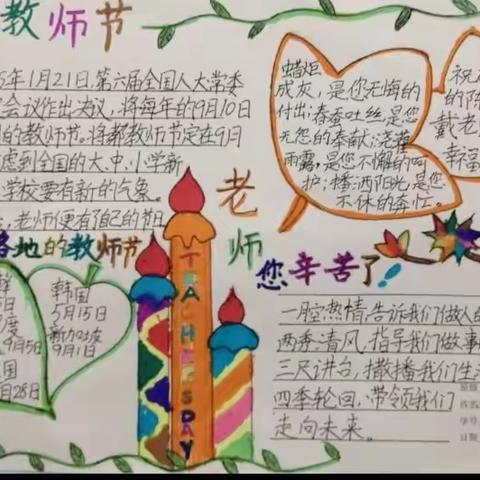 教师节
5年1月21日,第六届全国人大常委
会议作出决议,将每年的9月10日
的教师节。将教师节定在9月
虑到全国的大、中、小学新
学校要有新的气象。
老师便有了自己的节日
各地的教师节
5日
9月5日
国
月28日
韩国
5月15日
新加坡
9月1日
TEACHERSDAY
老师
您辛苦了!
蜡炬
成灰,是您无悔的
付出;春蚕吐丝,是您
无怨的奉献;浇灌
雨露,是您不懈的呵
护;播洒阳光,是您
不休的奔忙。
祝
的
戴老
幸福
一腔热情,告诉我们做人的
两季清风,指导我们做事
三尺讲台,撒播我们生
四季轮回,带领我们
走向未来。
班级
姓名
学号
日期